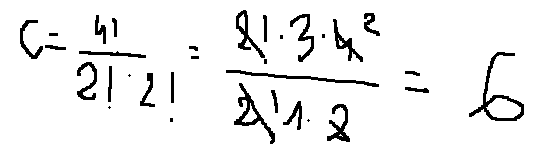 C = 4! / (2! · 2!) = (2! · 3 · 4²) / (2! 1 · 2) = 6